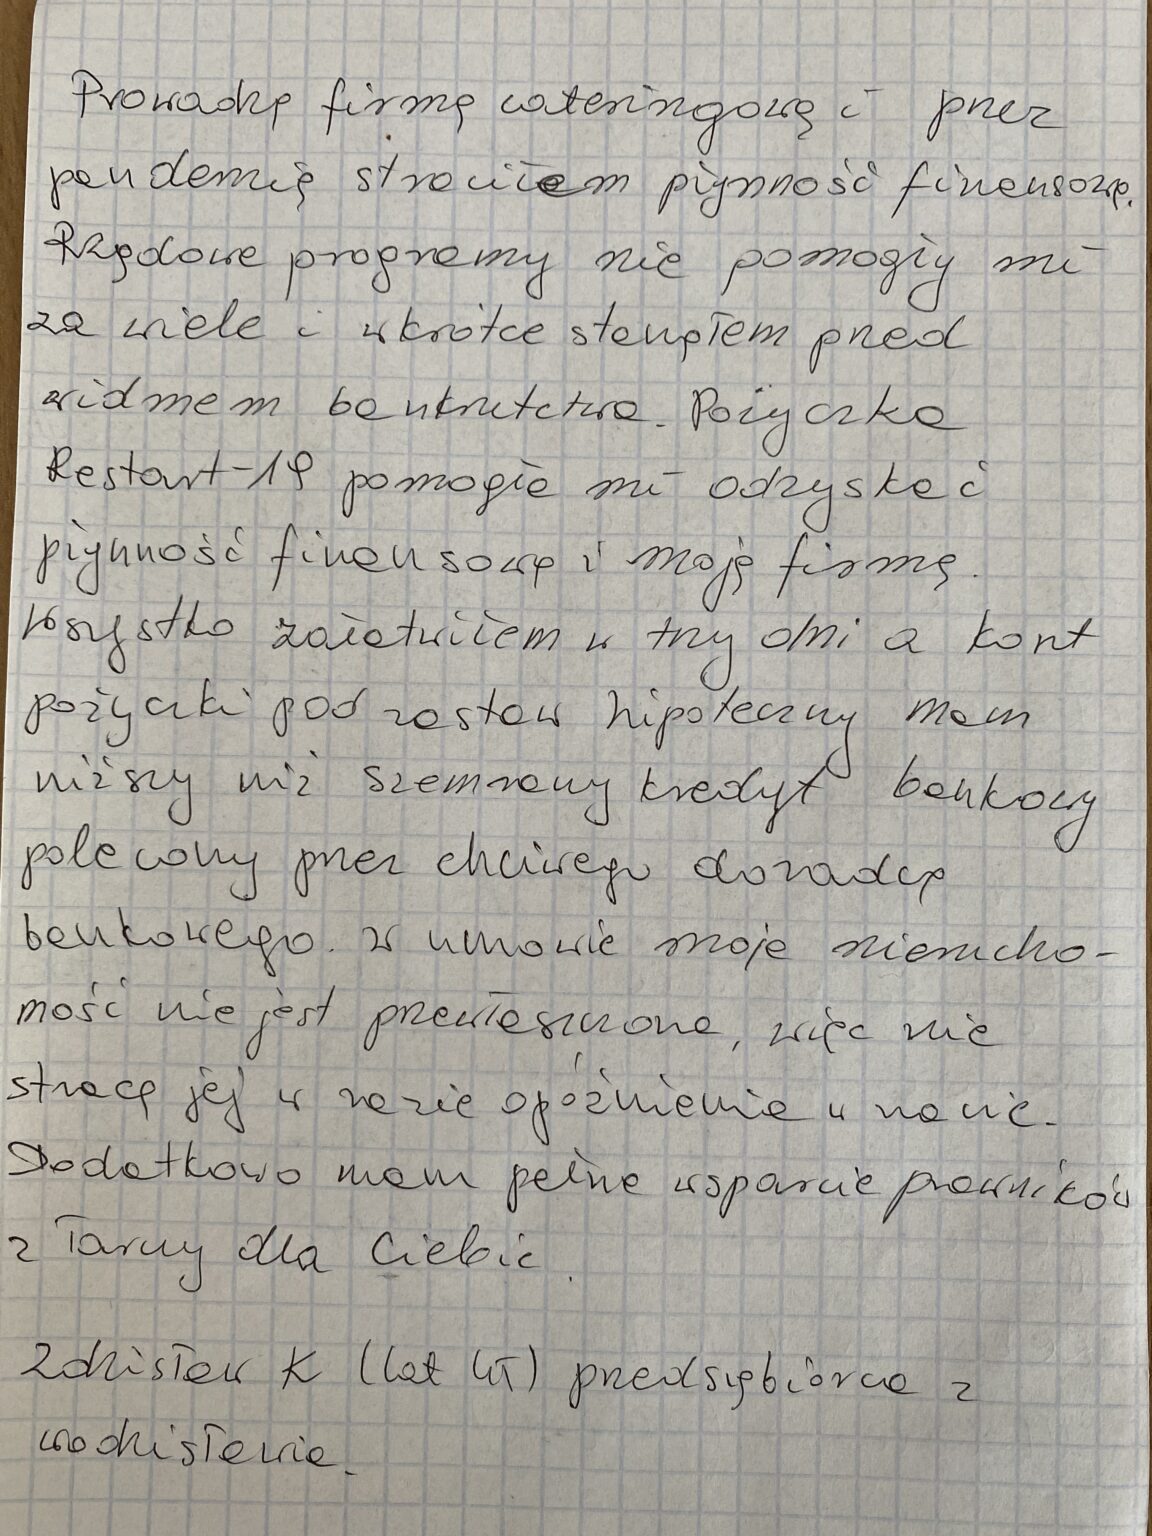 Prowadzę firmę cateringową i przez
pandemię straciłem płynność finansową.
Rządowe programy nie pomogły mi
za wiele i wkrótce stanąłem przed
widmem bankructwa. Pożyczka
Restart-19 pomogła mi odzyskać
płynność finansową i moją firmę.
Wszystko załatwiłem w trzy dni a koszt
pożyczki pod zastaw hipoteczny mam
niższy niż szemrany kredyt bankowy
polecony przez chciwego doradcę
bankowego. W umowie moja nierucho-
mość nie jest przewłaszczona, więc nie
stracę jej w razie opóźnienia w racie.
Dodatkowo mam pełne wsparcie prawników
z Tarczy dla Ciebie.
Zdzisław K (lat 47) przedsiębiorca z
Wodzisławia.